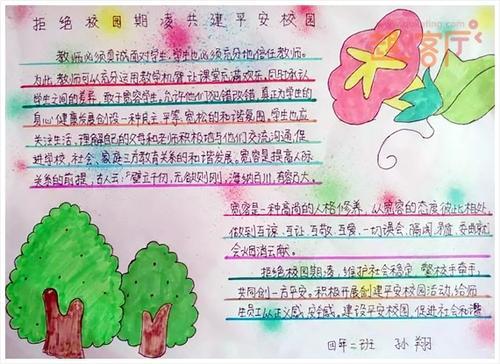 拒绝校园期凌共建平安校园
教师必须真诚面对学生,学生也必须充分地信任教师。
为此,教师可以充分运用教学机智,让课堂充满欢乐,同时承认
学生之间的差异,敢于宽容学生,允许他们犯错改错,真正为学生的
身心健康发展创设一种民主、平等、宽松的和谐氛围,学生也应
关注生活,理解自己的父母和老师积极地与他们交流沟通,促
进学校、社会、家庭三方教育关系的和谐发展,宽容是提高人际
关系的前提,古人云:“壁立千仞,无欲则刚,海纳百川,有容乃大。
宽容是一种高尚的人格修养,从宽容的态度彼此相处,
做到互谅、互让、互敬、互爱,一切误会、隔阂、矛盾、委曲就
会烟消云散。
拒绝校园期凌,维护社会稳定,警校手牵手,
共同创一方平安。积极开展创建平安校园活动,给师
生员工以正义感,安全感。建设平安校园,促进社会和谐
四年二班 孙翔
客厅